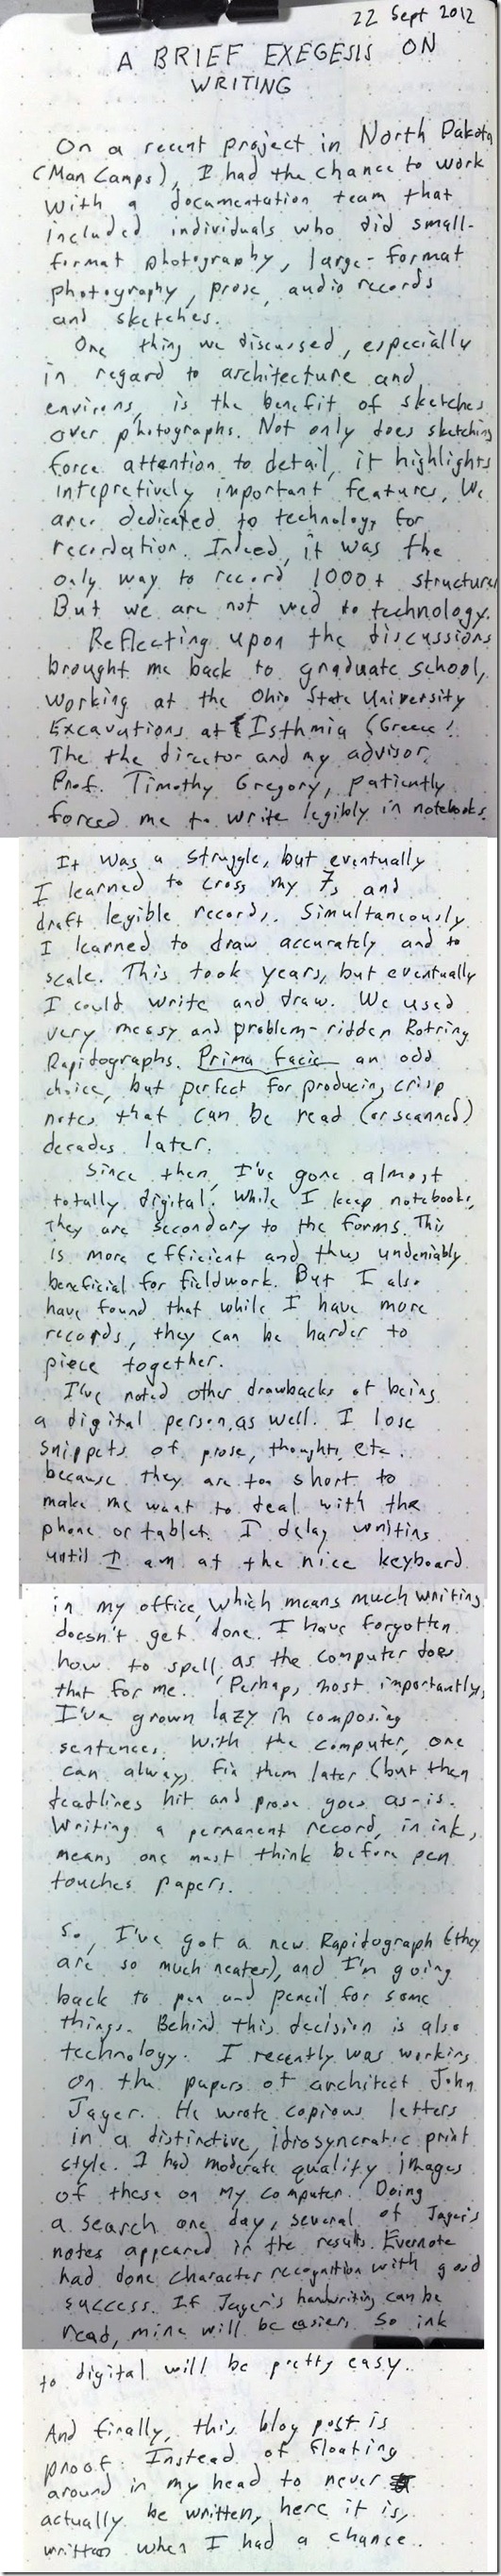 22 Sept 2012
A BRIEF EXEGESIS ON
WRITING
On a recent project in North Dakota
(Man Camps), I had the chance to work
with a documentation team that
included individuals who did small-
format photography, large-format
photography, prose, audio records
and sketches.
One thing we discussed, especially
in regard to architecture and
environs, is the benefit of sketches
over photographs. Not only does sketching
force attention to detail, it highlights
intepretively important features. We
are dedicated to technology for
recordation. Indeed, it was the
only way to record 1000+ structures
But we are not wed to technology.
Reflecting upon the discussions
brought me back to graduate school,
working at the Ohio State University
Excavations at Isthmia (Greece).
The the director and my advisor,
Prof. Timothy Gregory, patiently
forced me to write legibly in notebooks.
It was a struggle, but eventually
I learned to cross my 7s and
draft legible records. Simultaneously
I learned to draw accurately and to
scale. This took years, but eventually
I could write and draw. We used
very messy and problem-ridden Rotring
Rapidographs. Prima facie an odd
choice, but perfect for producing crisp
notes that can be read (or scanned)
decades later.
Since then, I've gone almost
totally digital. While I keep notebooks,
they are secondary to the forms. This
is more efficient and thus undeniably
beneficial for fieldwork. But I also
have found that while I have more
records, they can be harder to
piece together.
I've noted other drawbacks of being
a digital person, as well. I lose
snippets of prose, thoughts, etc.
because they are too short to
make me want to deal with the
phone or tablet. I delay writing
until I am at the nice keyboard
in my office, which means much writing
doesn't get done. I have forgotten
how to spell, as the computer does
that for me. Perhaps most importantly,
I've grown lazy in composing
sentences. With the computer, one
can always fix them later (but then
deadlines hit and prose goes as-is.
Writing a permanent record, in ink,
means one must think before pen
touches papers.
So, I've got a new Rapidograph (they
are so much neater), and I'm going
back to pen and pencil for some
things. Behind this decision is also
technology. I recently was working
on the papers of architect John
Jager. He wrote copious letters
in a distinctive, idiosyncratic print
style. I had moderate quality images
of these on my computer. Doing
a search one day, several of Jager's
notes appeared in the results. Evernote
had done character recognition with good
success. If Jager's handwriting can be
read, mine will be easier. So ink
to digital will be pretty easy.
And finally, this blog post is
proof. Instead of floating
around in my head to never
actually be written, here it is,
written when I had a chance.